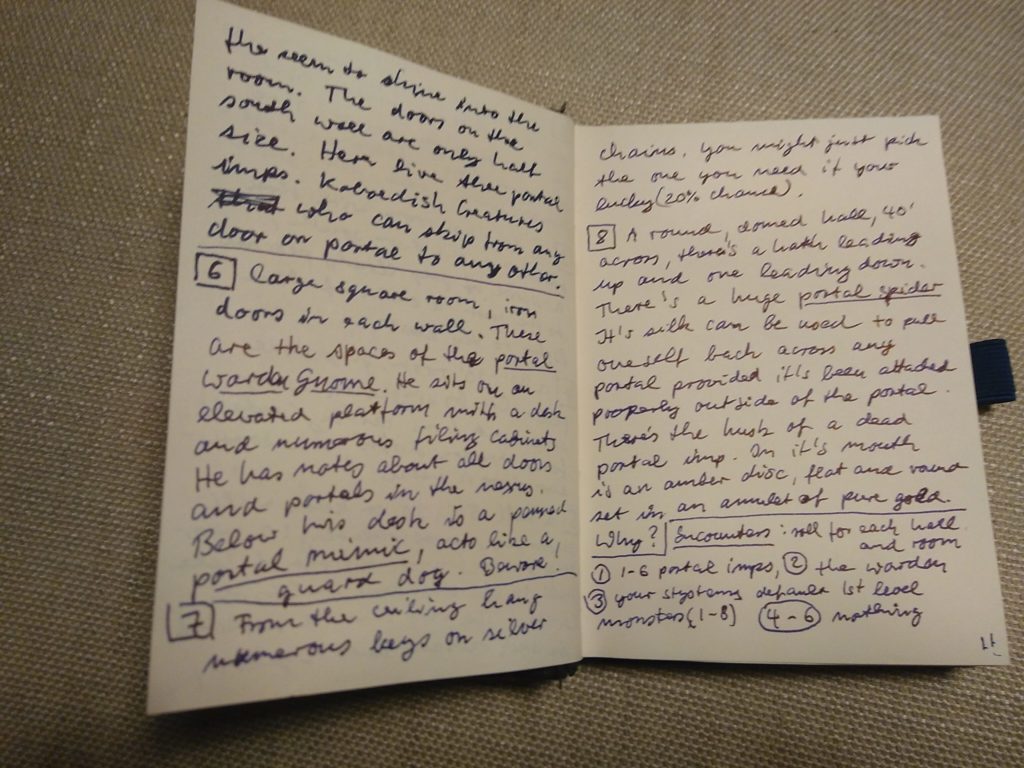 the seem to shine into the
room. The doors on the
south wall are only half
size. Here live three portal
imps. Koboldish Creatures
who can skip from any
door or portal to any other.
6 Large square room, iron
doors in each wall. These
are the spaces of the portal
warden Gnome. He sits on an
elevated platform with a desk
and numerous filing cabinets
He has notes about all doors
and portals in the nexus.
Below his desk is a
portal mimic, acts like a
guard dog. Beware!
7 From the ceiling hang
numerous keys on silver
chains. You might just pick
the one you need if your
lucky (20% chance).
8 A round, domed hall, 40'
across, there's a hath leading
up and one leading down.
There's a huge portal spider
It's silk can be used to pull
oneself back across any
portal provided it's been attached
properly outside of the portal.
There's the husk of a dead
portal imp. In it's mouth
is an amber disc, flat and round
set in an amulet of pure gold.
Why? Encounters: roll for each hall
and room
1 1-6 portal imps, 2 the warden
3 your systems default 1st level
monsters (1-8) 4-6 nothing
11